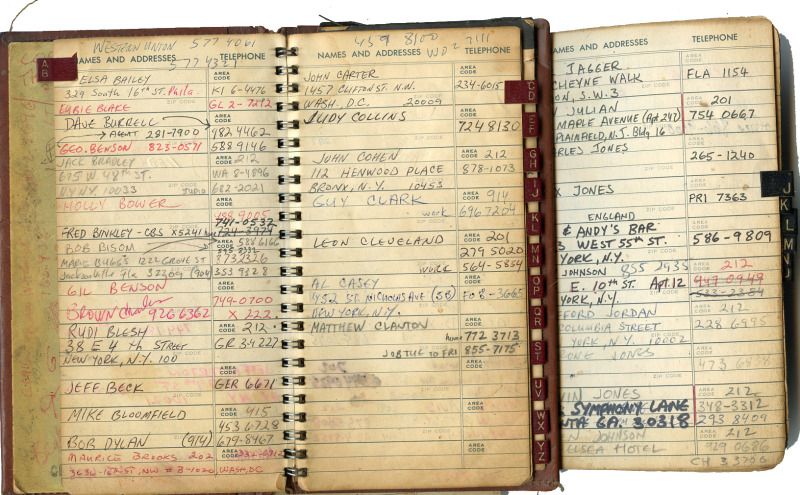 WESTERN UNION 577 4061
577 4321
NAMES AND ADDRESSES TELEPHONE
AB
ELSA BAILEY
329 South 16th ST. Phila. KI 6-4476
EUBIE BLAKE GL 2-7212
DAVE BURRELL
AGENT 281-7900 982 4462
GEO. BENSON 823-0571 588 9146
JACK BRADLEY 212
615 W 48th ST. WA 8-4896
NY NY 10033 STUDIO 682-2021
HOLLY BOWER
741-0532
FRED BINKLEY - CBS X5241 724-3974
BOB BISOM 584 6166
MARIE BUGGS 1222 GROVE ST
Jacksonville Fla (904) 353 9828
GIL BENSON
749-0700
BROWN Charles 926 6362 X 222
RUDI BLESH 212
38 E 4th STREET GR 34227
NEW YORK, N.Y. 100
JEFF BECK GER 6671
MIKE BLOOMFIELD 415
453 6728
BOB DYLAN (914) 679-8467
MAURICE BROOKS 202
3636-16th ST, NW # B-1020, WASH, DC
459 8100
WO 2 7111
NAMES AND ADDRESSES TELEPHONE
JOHN CARTER
1457 CLIFTON ST. N.W. 234-6015
WASH. D.C. 20009
JUDY COLLINS
724 8130
JOHN COHEN 212
112 HENWOOD PLACE 878-1073
BRONX, N.Y. 10453
GUY CLARK 914
work 696 7204
LEON CLEVELAND 201
279 5020
WORK 564-5854
AL CASEY
452 ST. NICHOLAS AVE (5B) FO 8-3665
NEW YORK, N.Y.
MATTHEW CLANTON
home 772 3713
JOB TUE TO FRI 855-7175
CD
EF
GH
IJ
KL
MN
OP
QR
ST
UV
WX
YZ
NAMES AND ADDRESSES TELEPHONE
JAGGER
CHEYNE WALK FLA 1154
ON, S.W.3
JULIAN 201
MAPLE AVENUE (Apt 247) 754 0667
PLAINFIELD, N.J. Bldg 16
RLES JONES
265-1240
X JONES
PRI 7363
ENGLAND
& ANDY'S BAR
3 WEST 55th ST. 586-9809
YORK, N.Y.
JOHNSON 855 2435 212
E. 10th ST. Apt. 12 947 0949
YORK, N.Y. 533-2384
FFORD JORDAN 212
COLUMBIA STREET 228 6995
YORK, N.Y. 10002
ONE JONES
VIN JONES 212
SYMPHONY LANE 348-3312
NTA GA. 30318 293 8409
N JOHNSON 212
LSEA HOTEL 929 0686
CH 3 3700
J
K
L
M
N